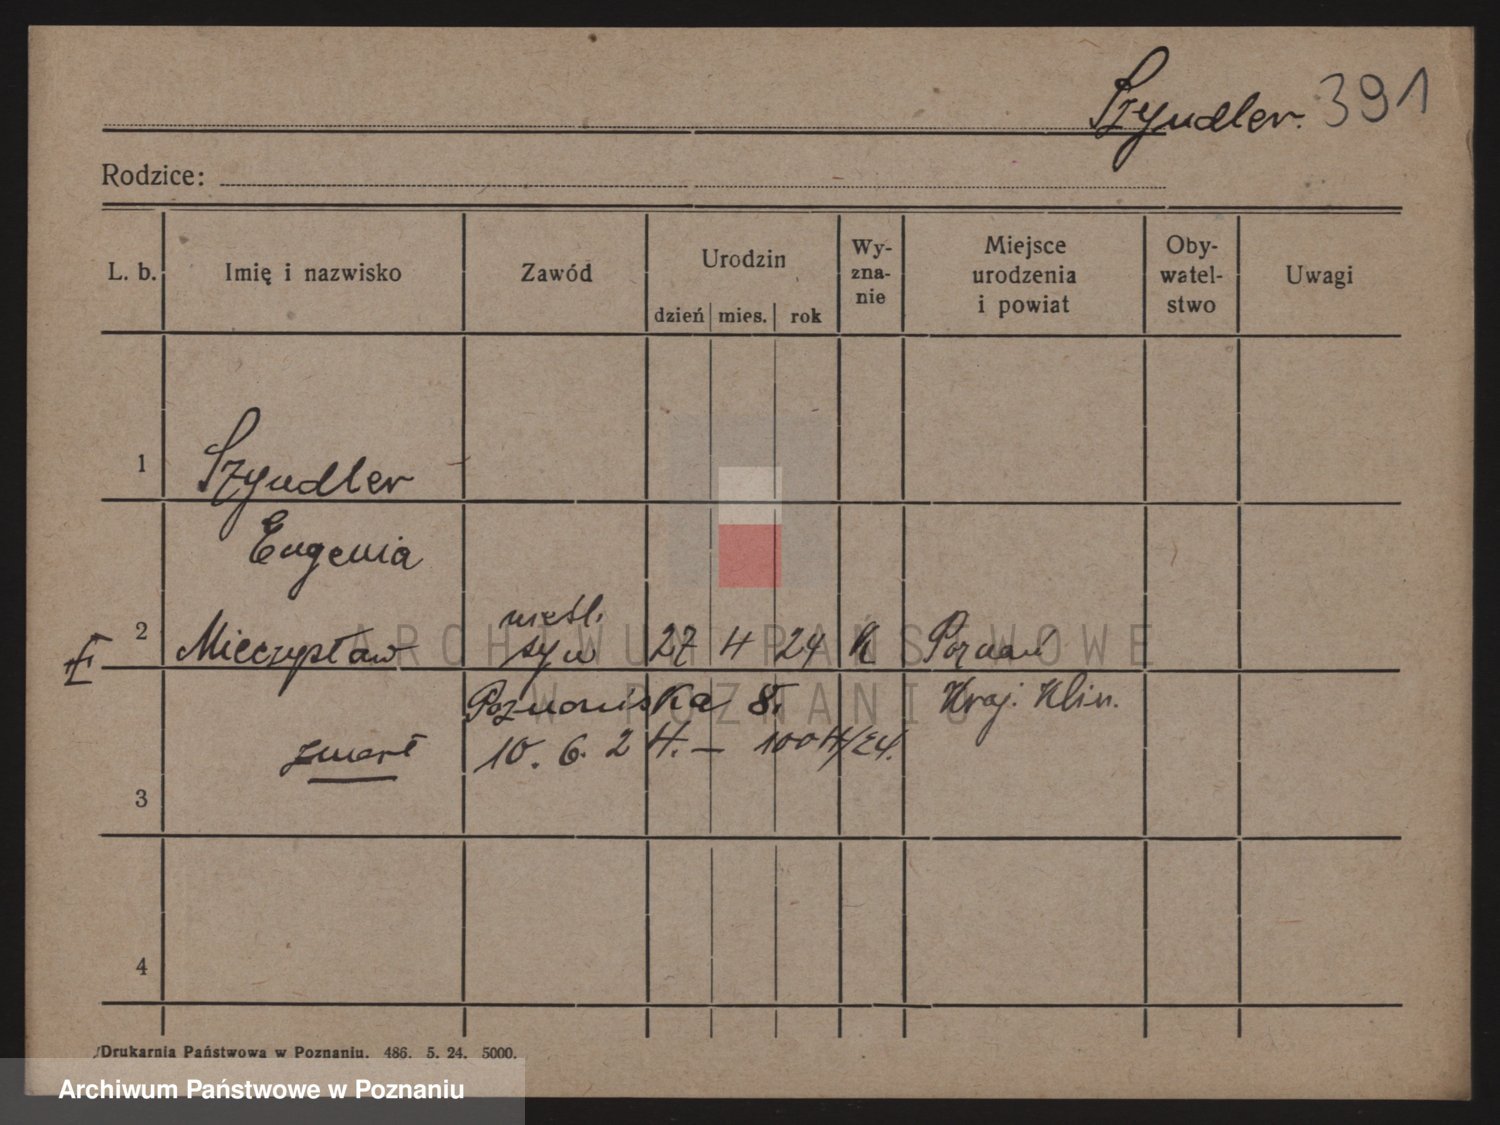 Szyndler. 391
Rodzice:
L. b. Imię i nazwisko Zawód Urodzin dzień mies. rok Wy-zna-nie Miejsce urodzenia i powiat Oby-watel-stwo Uwagi
1 Szyndler
Eugenia
nieśl.
2 Mieczysław syn 27 4 24 k Poznań
Poznańska 8. Kraj. Klin.
zmarł 10. 6. 24. — 1004/24.
3
4
Drukarnia Państwowa w Poznaniu. 486. 5. 24. 5000.
ARCHIWUM PAŃSTWOWE
W POZNANIU
Archiwum Państwowe w Poznaniu